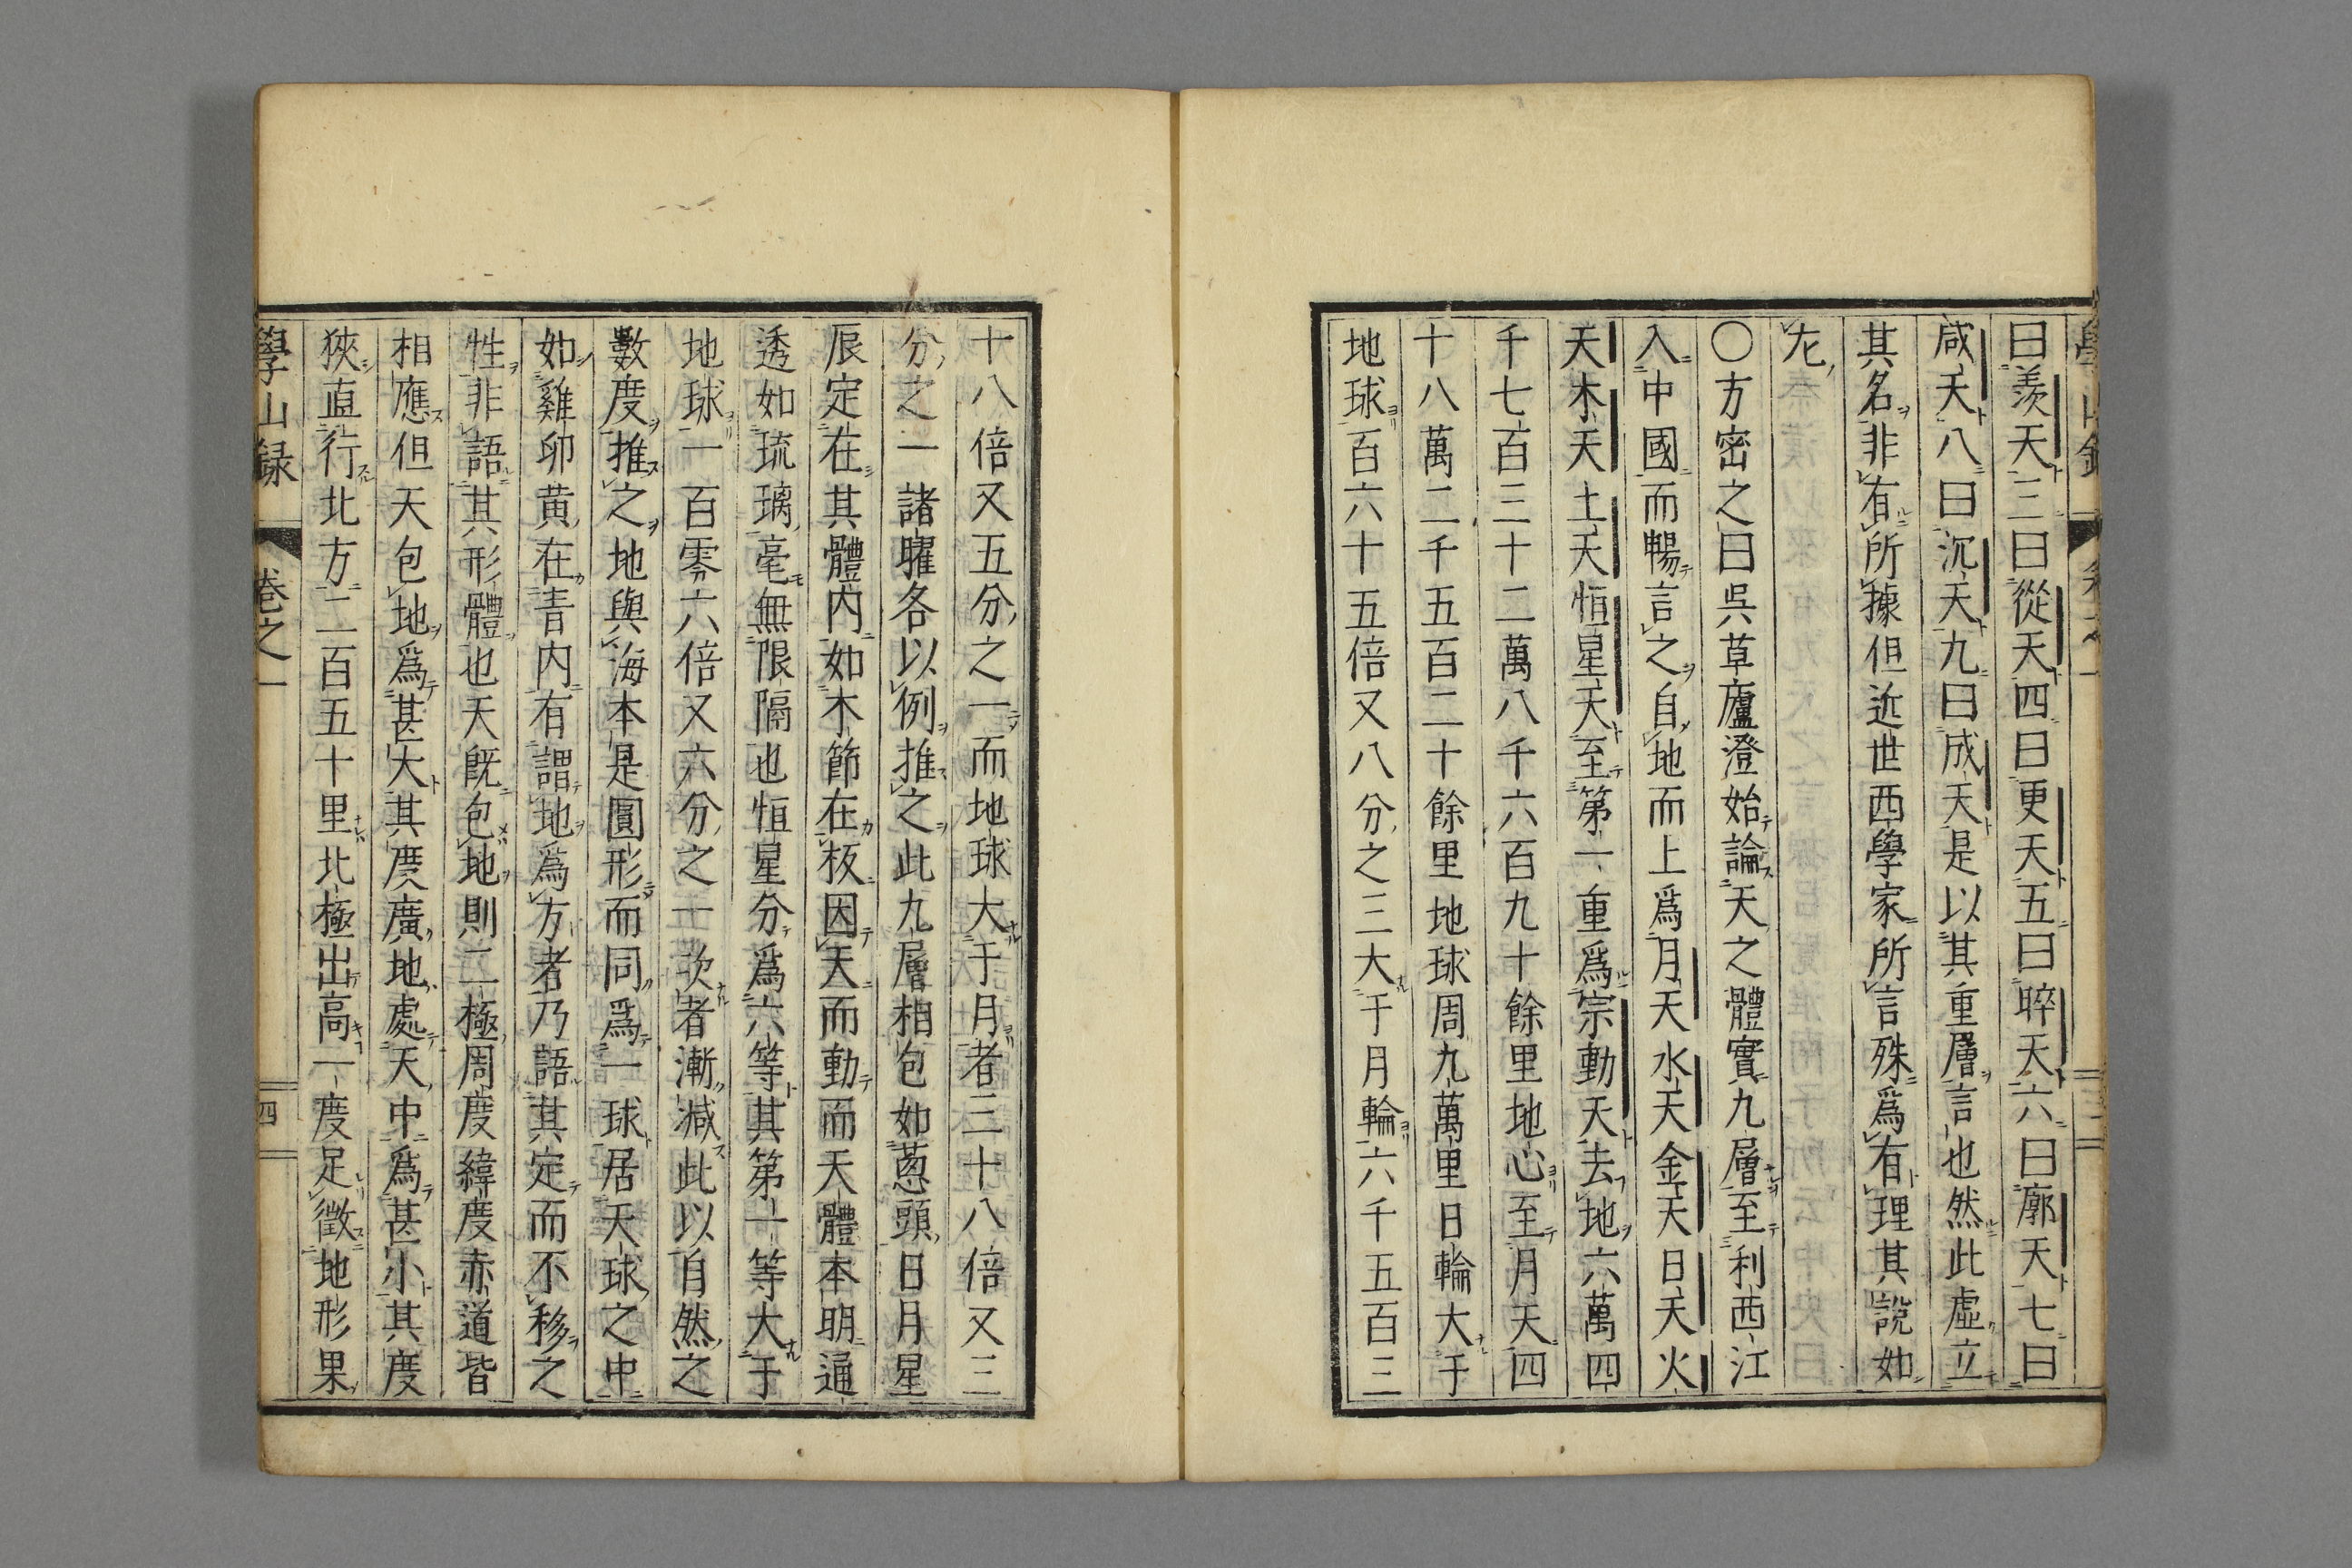 曰羨天三曰從天四曰更天五曰晬天六曰廓天七曰
咸天八曰沉天九曰成天是以其重層言也然此虛立
其名非有所據但近世西學家所言殊爲有理其說如
左
〇方密之曰吳草廬澄始論天之體實九層至利西江
入中國而暢言之自地而上爲月天水天金天日天火
天木天土天恒星天至第一重爲宗動天去地六萬四
千七百三十二萬八千六百九十餘里地心至月天四
十八萬二千五百二十餘里地球周九萬里日輪大于
地球百六十五倍又八分之三大于月輪六千五百三
十八倍又五分之一而地球大于月者三十八倍又三
分之一諸曜各以例推之此九層相包如蔥頭日月星
辰定在其體内如木節在板因天而動而天體本明通
透如琉璃毫無限隔也恒星分爲六等其第一等大于
地球一百零六倍又六分之一次者漸减此以自然之
數度推之地與海本是圓形而同爲一球居天球之中
如雞卵黄在青内有謂地爲方者乃語其定而不移之
性非語其形體也天旣包地則二極周度緯度赤道皆
相應但天包地爲甚大其度廣地處天中爲甚小其度
狹直行北方二百五十里北極出高一度足徵地形果
學山録
卷之一
四